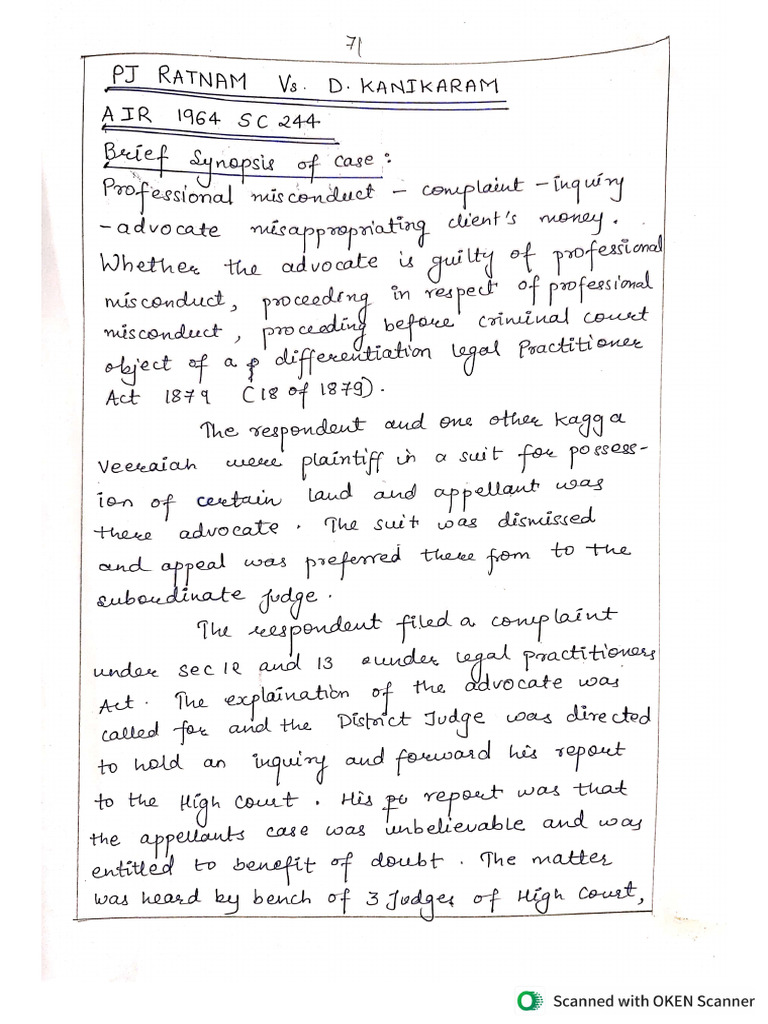 71
PJ RATNAM Vs. D. KANIKARAM
AIR 1964 SC 244
Brief Synopsis of case:
Professional misconduct – complaint – inquiry
– advocate misappropriating client's money.
Whether the advocate is guilty of professional
misconduct, proceeding in respect of professional
misconduct, proceeding before criminal court
object of a differentiation legal Practitioner
Act 1879 (18 of 1879).
The respondent and one other Kagga
Veeraiah were plaintiff in a suit for possess-
ion of certain land and appellant was
there advocate. The suit was dismissed
and appeal was preferred there from to the
subordinate judge.
The respondent filed a complaint
under sec 12 and 13 under legal practitioners
Act. The explaination of the advocate was
called for and the District Judge was directed
to hold an inquiry and forward his report
to the High court. His report was that
the appellants case was unbelievable and was
entitled to benefit of doubt. The matter
was heard by bench of 3 Judges of High Court,
Scanned with OKEN Scanner